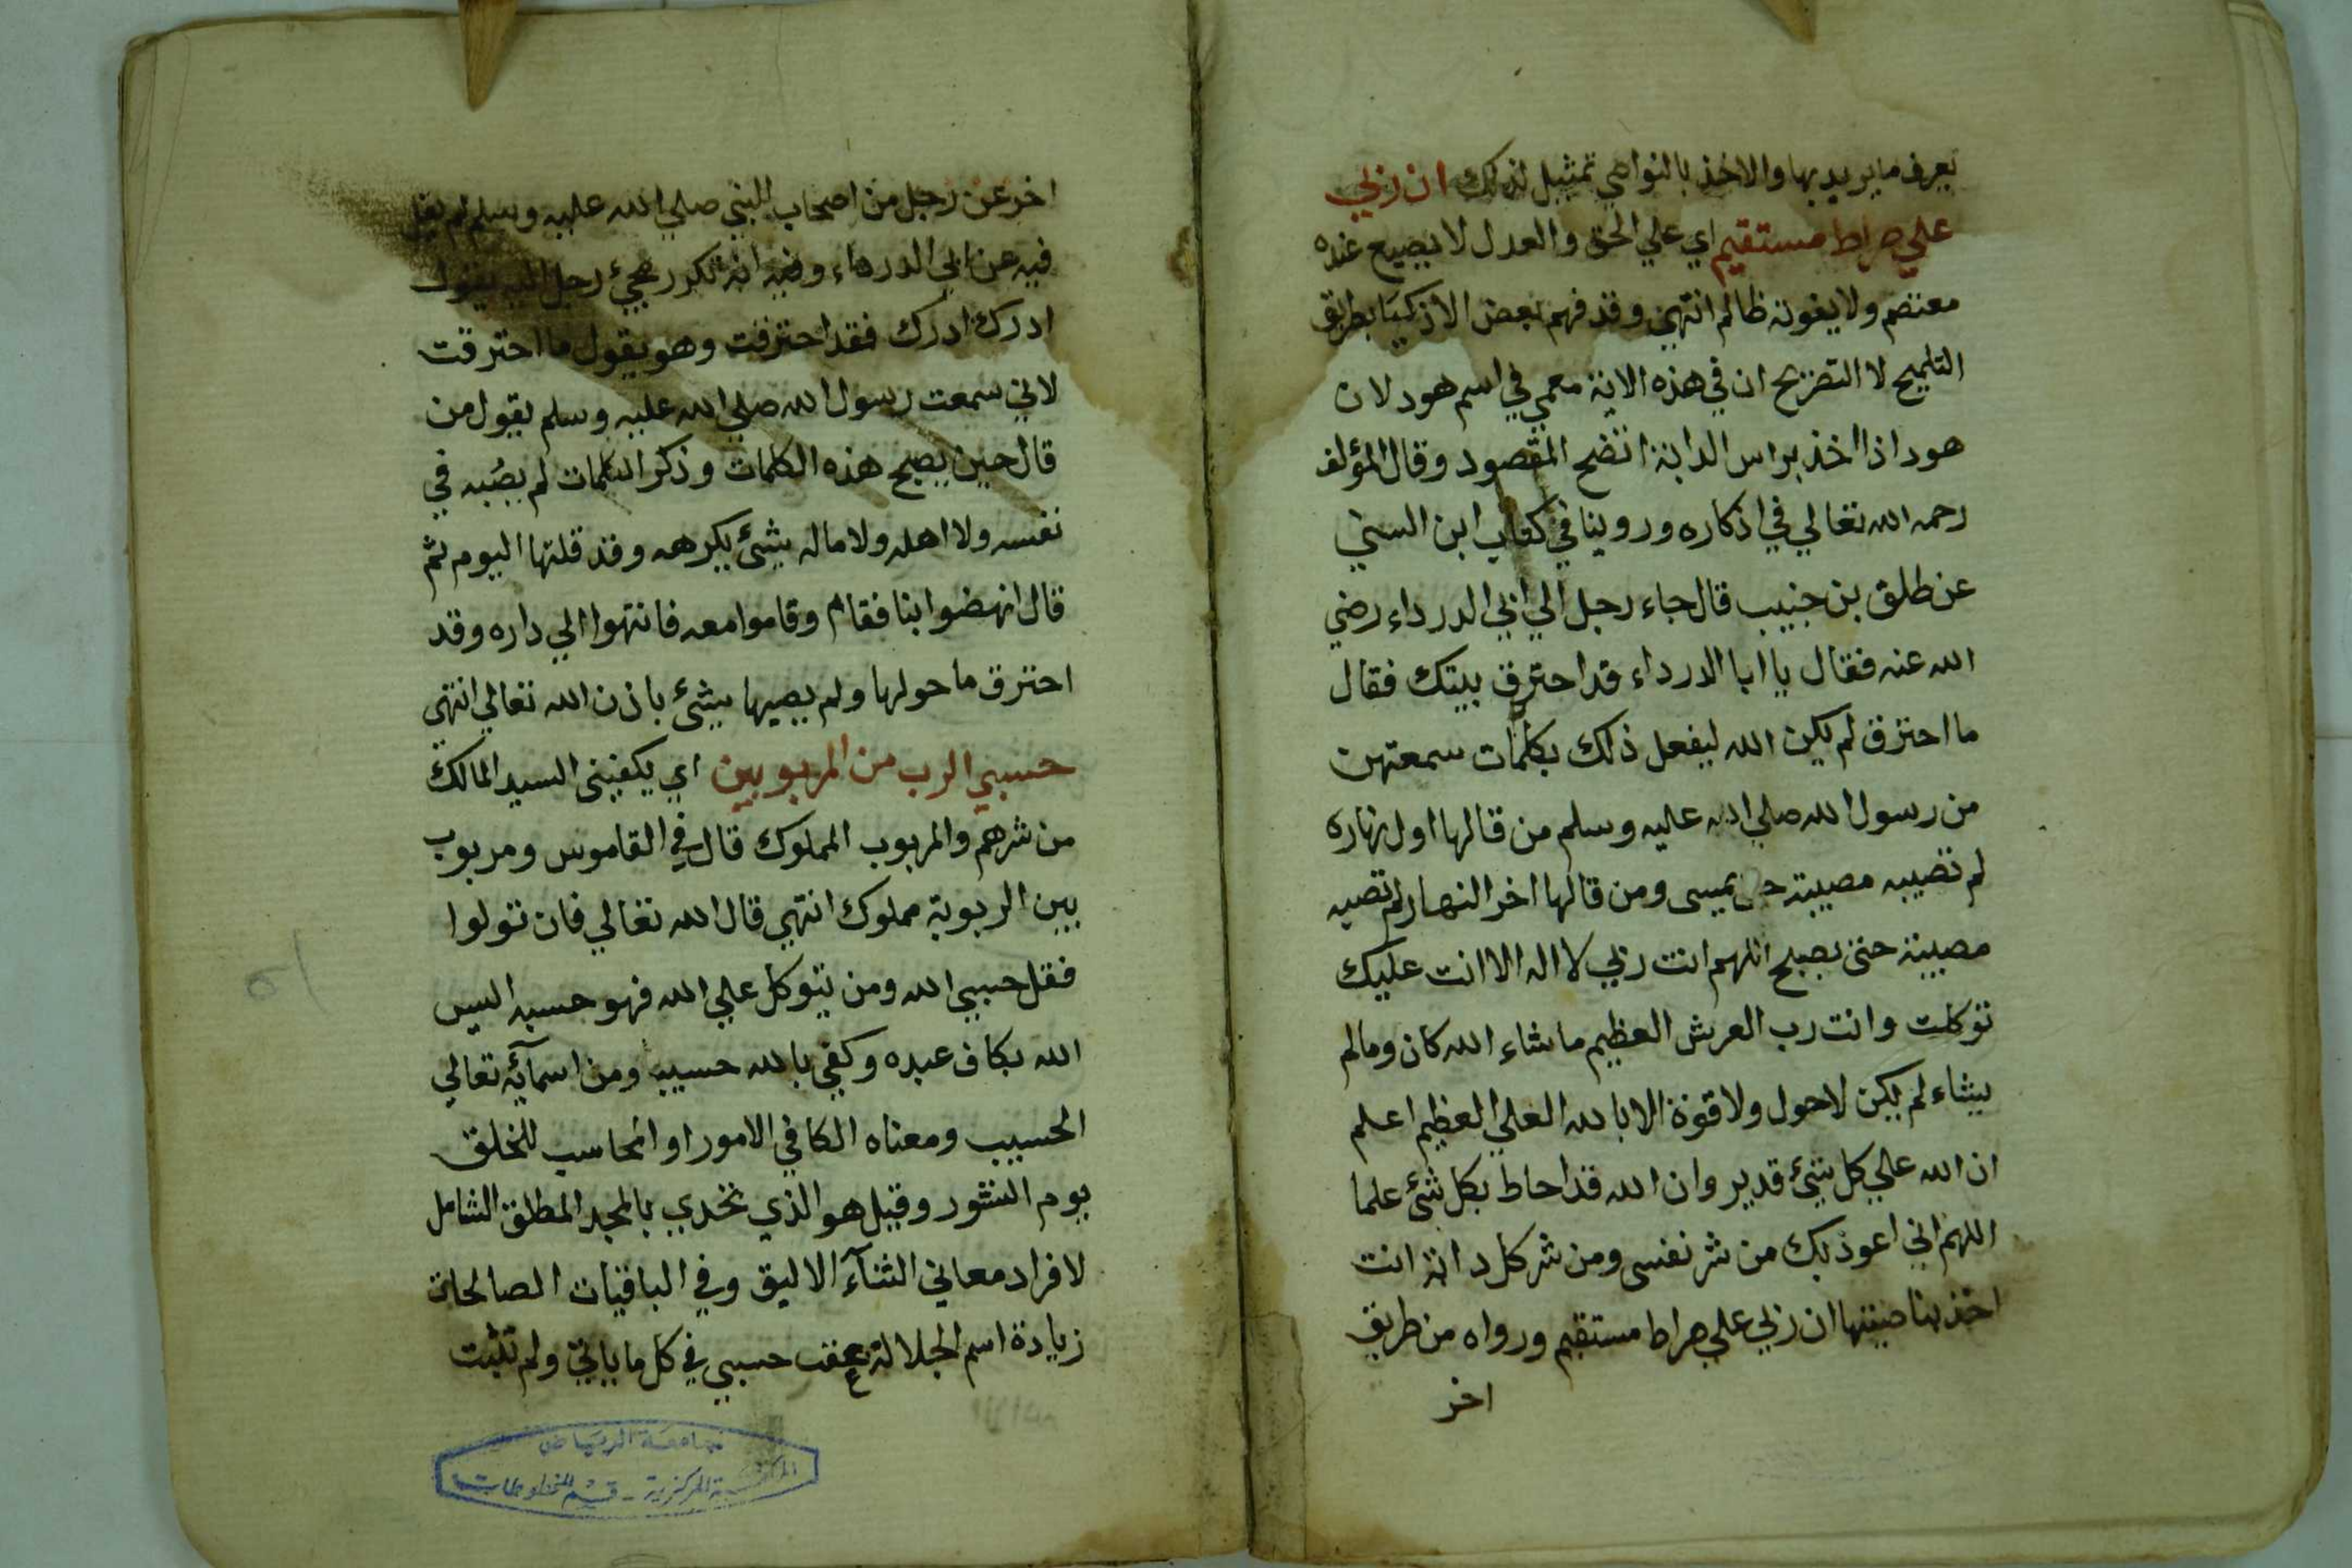 يعرف ما يريد بها والاخذ بالنواصي تمثيل لذلك ان ربي
علي صراط مستقيم اي علي الحق والعدل لا يضيع عنده
معتصم ولا يفوته ظالم انتهي وقد فهم بعض الاذكيا بطريق
التلميح لا التصريح ان في هذه الاية معمي في اسم هود لان
هود اذا اخذ براس الدابة اتضح المقصود وقال المؤلف
رحمه الله تعالي في اذكاره وروينا في كتاب ابن السني
عن طلق بن حبيب قال جاء رجل الي ابي الدرداء رضي
الله عنه فقال يا ابا الدرداء قد احترق بيتك فقال
ما احترق لم يكن الله ليفعل ذلك بكلمات سمعتهن
من رسول الله صلي الله عليه وسلم من قالها اول نهاره
لم تصيبه مصيبة حتى يمسى ومن قالها اخر النهار لم تصبه
مصيبة حتى يصبح اللهم انت ربي لا اله الا انت عليك
توكلت وانت رب العرش العظيم ما شاء الله كان وما لم
يشاء لم يكن لا حول ولا قوة الا بالله العلي العظيم اعلم
ان الله علي كل شئ قدير وان الله قد احاط بكل شئ علما
اللهم اني اعوذ بك من شر نفسى ومن شر كل دابة انت
اخذ بناصيتها ان ربي علي صراط مستقيم ورواه من طريق
اخر
اخر عن رجل من اصحاب النبي صلي الله عليه وسلم لم يقل
فيه عن ابي الدرداء وفيه انه تكرر مجئ رجل اليه يقول
ادرك ادرك فقد احترقت وهو يقول ما احترقت
لاني سمعت رسول الله صلي الله عليه وسلم يقول من
قال حين يصبح هذه الكلمات وذكر الكلمات لم يصبه في
نفسه ولا اهله ولا ماله بشئ يكرهه وقد قلتها اليوم ثم
قال انهضوا بنا فقام وقاموا معه فانتهوا الي داره وقد
احترق ما حولها ولم يصبها بشئ باذن الله تعالي انتهي
حسبي الرب من المربوبين اي يكفيني السيد المالك
من شرهم والمربوب المملوك قال في القاموس ومربوب
بين الربوبة مملوك انتهي قال الله تعالي فان تولوا
فقل حسبي الله ومن يتوكل علي الله فهو حسبه اليس
الله بكاف عبده وكفي بالله حسيب ومن اسمآئه تعالي
الحسيب ومعناه الكافي الامور او المحاسب للخلق
يوم النشور وقيل هو الذي تحدي بالمجد المطلق الشامل
لافراد معاني الثنآء الاليق وفي الباقيات الصالحات
زيادة اسم الجلالة عقب حسبي في كل ما ياتي ولم تثبت
جامعة الرياض
المكتبة المركزية - قسم المخطوطات